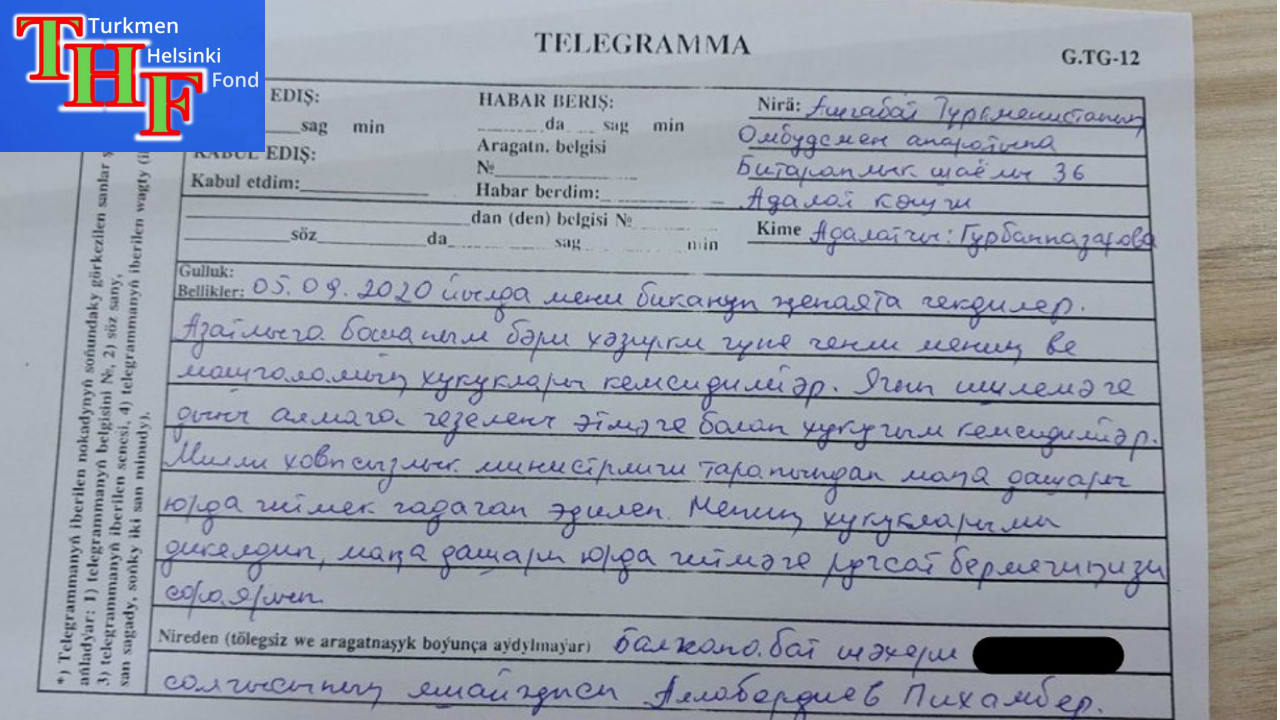 Turkmen
Helsinki
Fond
THF
TELEGRAMMA
G.TG-12
EDIŞ:
sag min
KABUL EDIŞ:
Kabul etdim:
HABAR BERIŞ:
da sag min
Aragatn. belgisi
№
Habar berdim:
dan (den) belgisi №
söz da sag min
Nirä: Ашгабат Түркменистаның
Омбудсмен апаратына
Битараплык шаёлы 36
Адалат көшги
Kime Адалатчы: Гурбанназарова
Gulluk:
Bellikler: 05.09.2020 йылда мени бикануп җенаята чекдилер.
Азатлыга бошаным бәри хәзирки гүне ченли мениң ве
машгаламың хукуклары кемсидилйәр. Ягны
дынч алмага гезеленч этмәге болан хукугым кемсидилйәр.
Милли ховпсызлык министрлиги тарапындан маңа дашары
юрда гитмек гадаган эдилен. Мениң хукукларымы
дикелдип, маңа дашары юрда гитмәге ругсат бермегиңизи
сораярын.
Nireden (tölegsiz we aragatnaşyk boýunça aýdylmaýar) Балканабат шәхери
солгысының яшайҗысы Аллабердиев Пихамбер.
*) Telegrammanyň iberilen nokadynyň soňundaky görkezilen sanlar
aňladýar: 1) telegrammanyň belgisini №, 2) söz sany,
3) telegrammanyň iberilen senesi, 4) telegrammanyň iberilen wagty
san sagady, soňky iki san minudy).